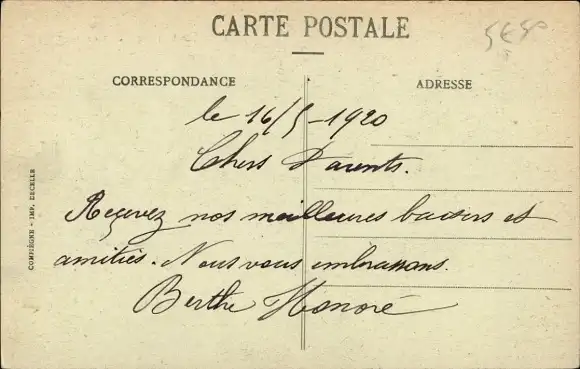 CARTE POSTALE
5€50
CORRESPONDANCE
ADRESSE
le 16/5-1920
Chers Parents.
Recevez nos meilleures baisers et
amitiés. Nous vous embrassons.
Berthe Honoré
COMPIÈGNE - IMP. DECELER